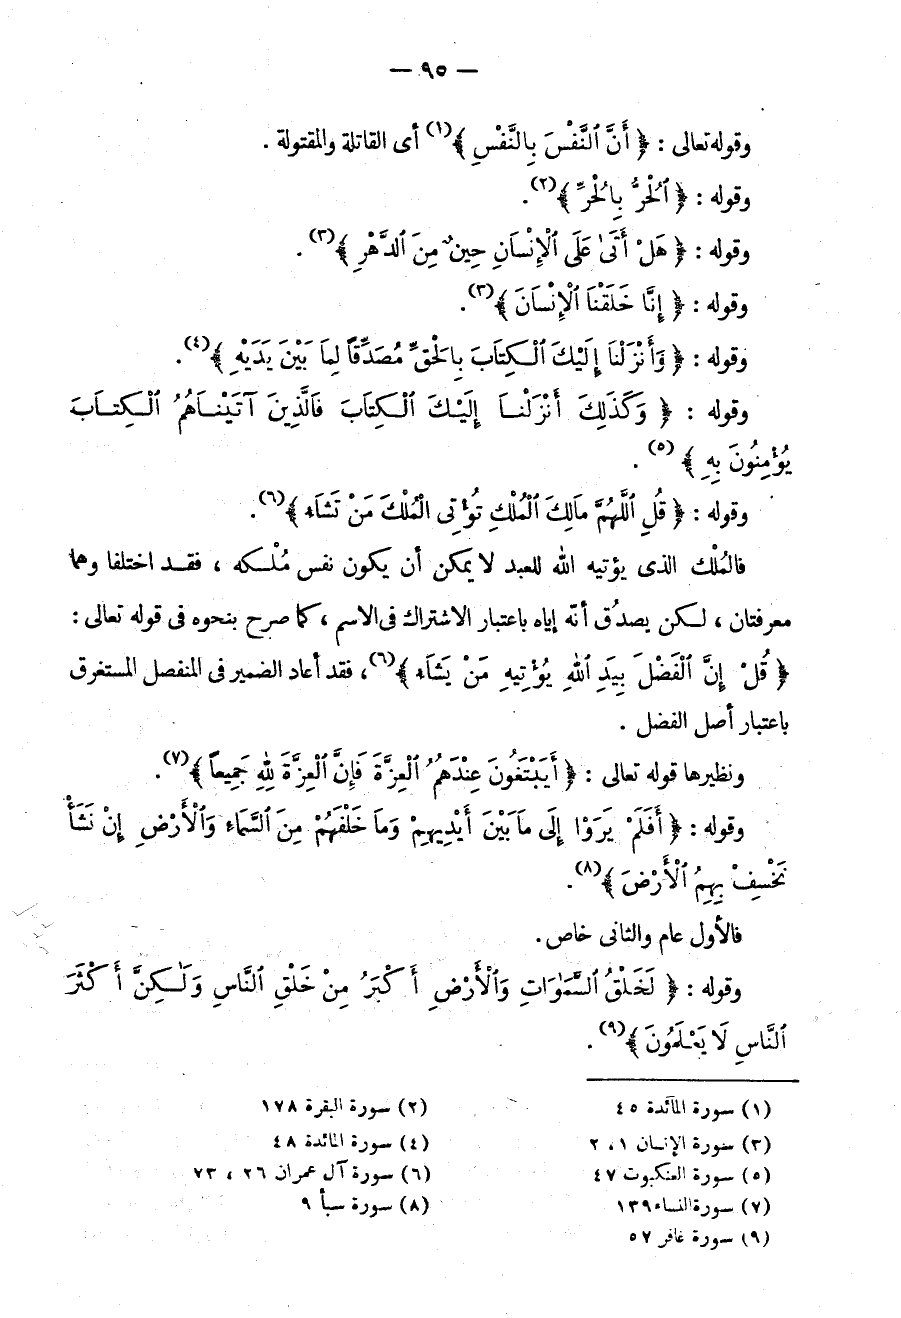 — ٩٥ —
وقوله تعالى : ﴿ أَنَّ ٱلنَّفْسَ بِالنَّفْسِ ﴾(١) أى القاتلة والمقتولة .
وقوله : ﴿ ٱلْحُرُّ بِالْحُرِّ ﴾(٢).
وقوله : ﴿ هَلْ أَتَىٰ عَلَى ٱلْإِنْسَانِ حِينٌ مِنَ ٱلدَّهْرِ ﴾(٣) .
وقوله : ﴿ إِنَّا خَلَقْنَا ٱلْإِنْسَانَ ﴾(٣).
وقوله : ﴿ وَأَنْزَلْنَا إِلَيْكَ ٱلْكِتَابَ بِالْحَقِّ مُصَدِّقاً لِمَا بَيْنَ يَدَيْهِ ﴾(٤).
وقوله : ﴿ وَكَذَلِكَ أَنْزَلْنَا إِلَيْكَ ٱلْكِتَابَ فَالَّذِينَ آتَيْنَاهُمُ ٱلْكِتَابَ
يُؤْمِنُونَ بِهِ ﴾(٥) .
وقوله : ﴿ قُلِ ٱللَّهُمَّ مَالِكَ ٱلْمُلْكِ تُؤْتِى الْمُلْكَ مَنْ تَشَاء ﴾(٦).
فالمُلْك الذى يؤتيه الله للعبد لا يمكن أن يكون نفس مُلْكه ، فقد اختلفا وهما
معرفتان ، لكن يصدُق أنّه إياه باعتبار الاشتراك فى الاسم ، كما صرح بنحوه فى قوله تعالى :
﴿ قُلْ إِنَّ ٱلْفَضْلَ بِيَدِ ٱللهِ يُؤْتِيهِ مَنْ يَشَاء ﴾(٦)، فقد أعاد الضمير فى المنفصل المستغرق
باعتبار أصل الفضل .
ونظيرها قوله تعالى : ﴿ أَيَبْتَغُونَ عِنْدَهُمُ ٱلْعِزَّةَ فَإِنَّ ٱلْعِزَّةَ لِلهِ جَمِيعاً ﴾(٧).
وقوله : ﴿ أَفَلَمْ يَرَوْا إِلَى مَا بَيْنَ أَيْدِيهِمْ وَمَا خَلْفَهُمْ مِنَ ٱلسَّمَاءِ وَٱلْأَرْضِ إِنْ نَشَأْ
نَخْسِفْ بِهِمُ ٱلْأَرْضَ ﴾(٨).
فالأول عام والثانى خاص.
وقوله : ﴿ لَخَلْقُ ٱلسَّمَوَاتِ وَٱلْأَرْضِ أَكْبَرُ مِنْ خَلْقِ ٱلنَّاسِ وَلَٰكِنَّ أَكْثَرَ
ٱلنَّاسِ لَا يَعْلَمُونَ ﴾(٩) .
(١) سورة المائدة ٤٥ (٢) سورة البقرة ١٧٨
(٣) سورة الإنسان ١ ، ٢ (٤) سورة المائدة ٤٨
(٥) سورة العنكبوت ٤٧ (٦) سورة آل عمران ٢٦ ، ٧٣
(٧) سورة النساء ١٣٩ (٨) سورة سبأ ٩
(٩) سورة غافر ٥٧